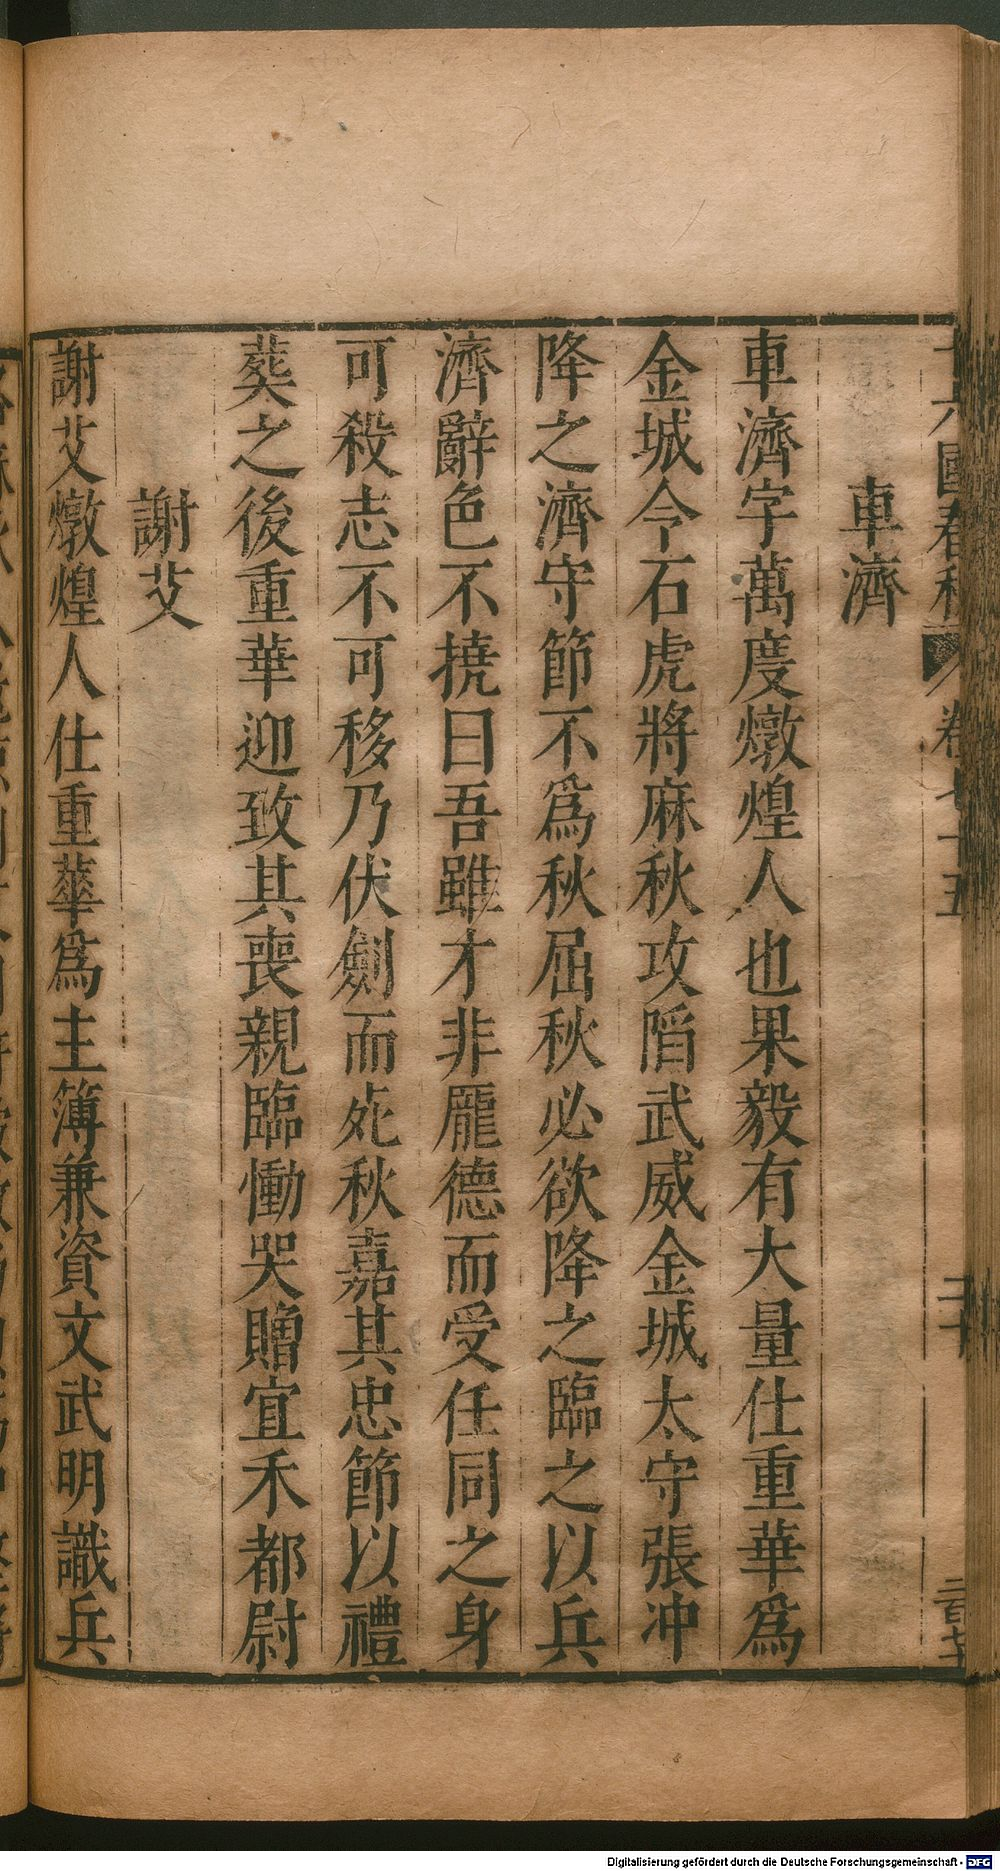 十六國春秋 卷七十五 二十
車濟
車濟字萬度燉煌人也果毅有大量仕重華爲
金城令石虎將麻秋攻陷武威金城太守張冲
降之濟守節不爲秋屈秋必欲降之臨之以兵
濟辭色不撓曰吾雖才非龐德而受任同之身
可殺志不可移乃伏劍而死秋嘉其忠節以禮
葬之後重華迎致其喪親臨慟哭贈宜禾都尉
謝艾
謝艾燉煌人仕重華爲主簿兼資文武明識兵
Digitalisierung gefördert durch die Deutsche Forschungsgemeinschaft - DFG